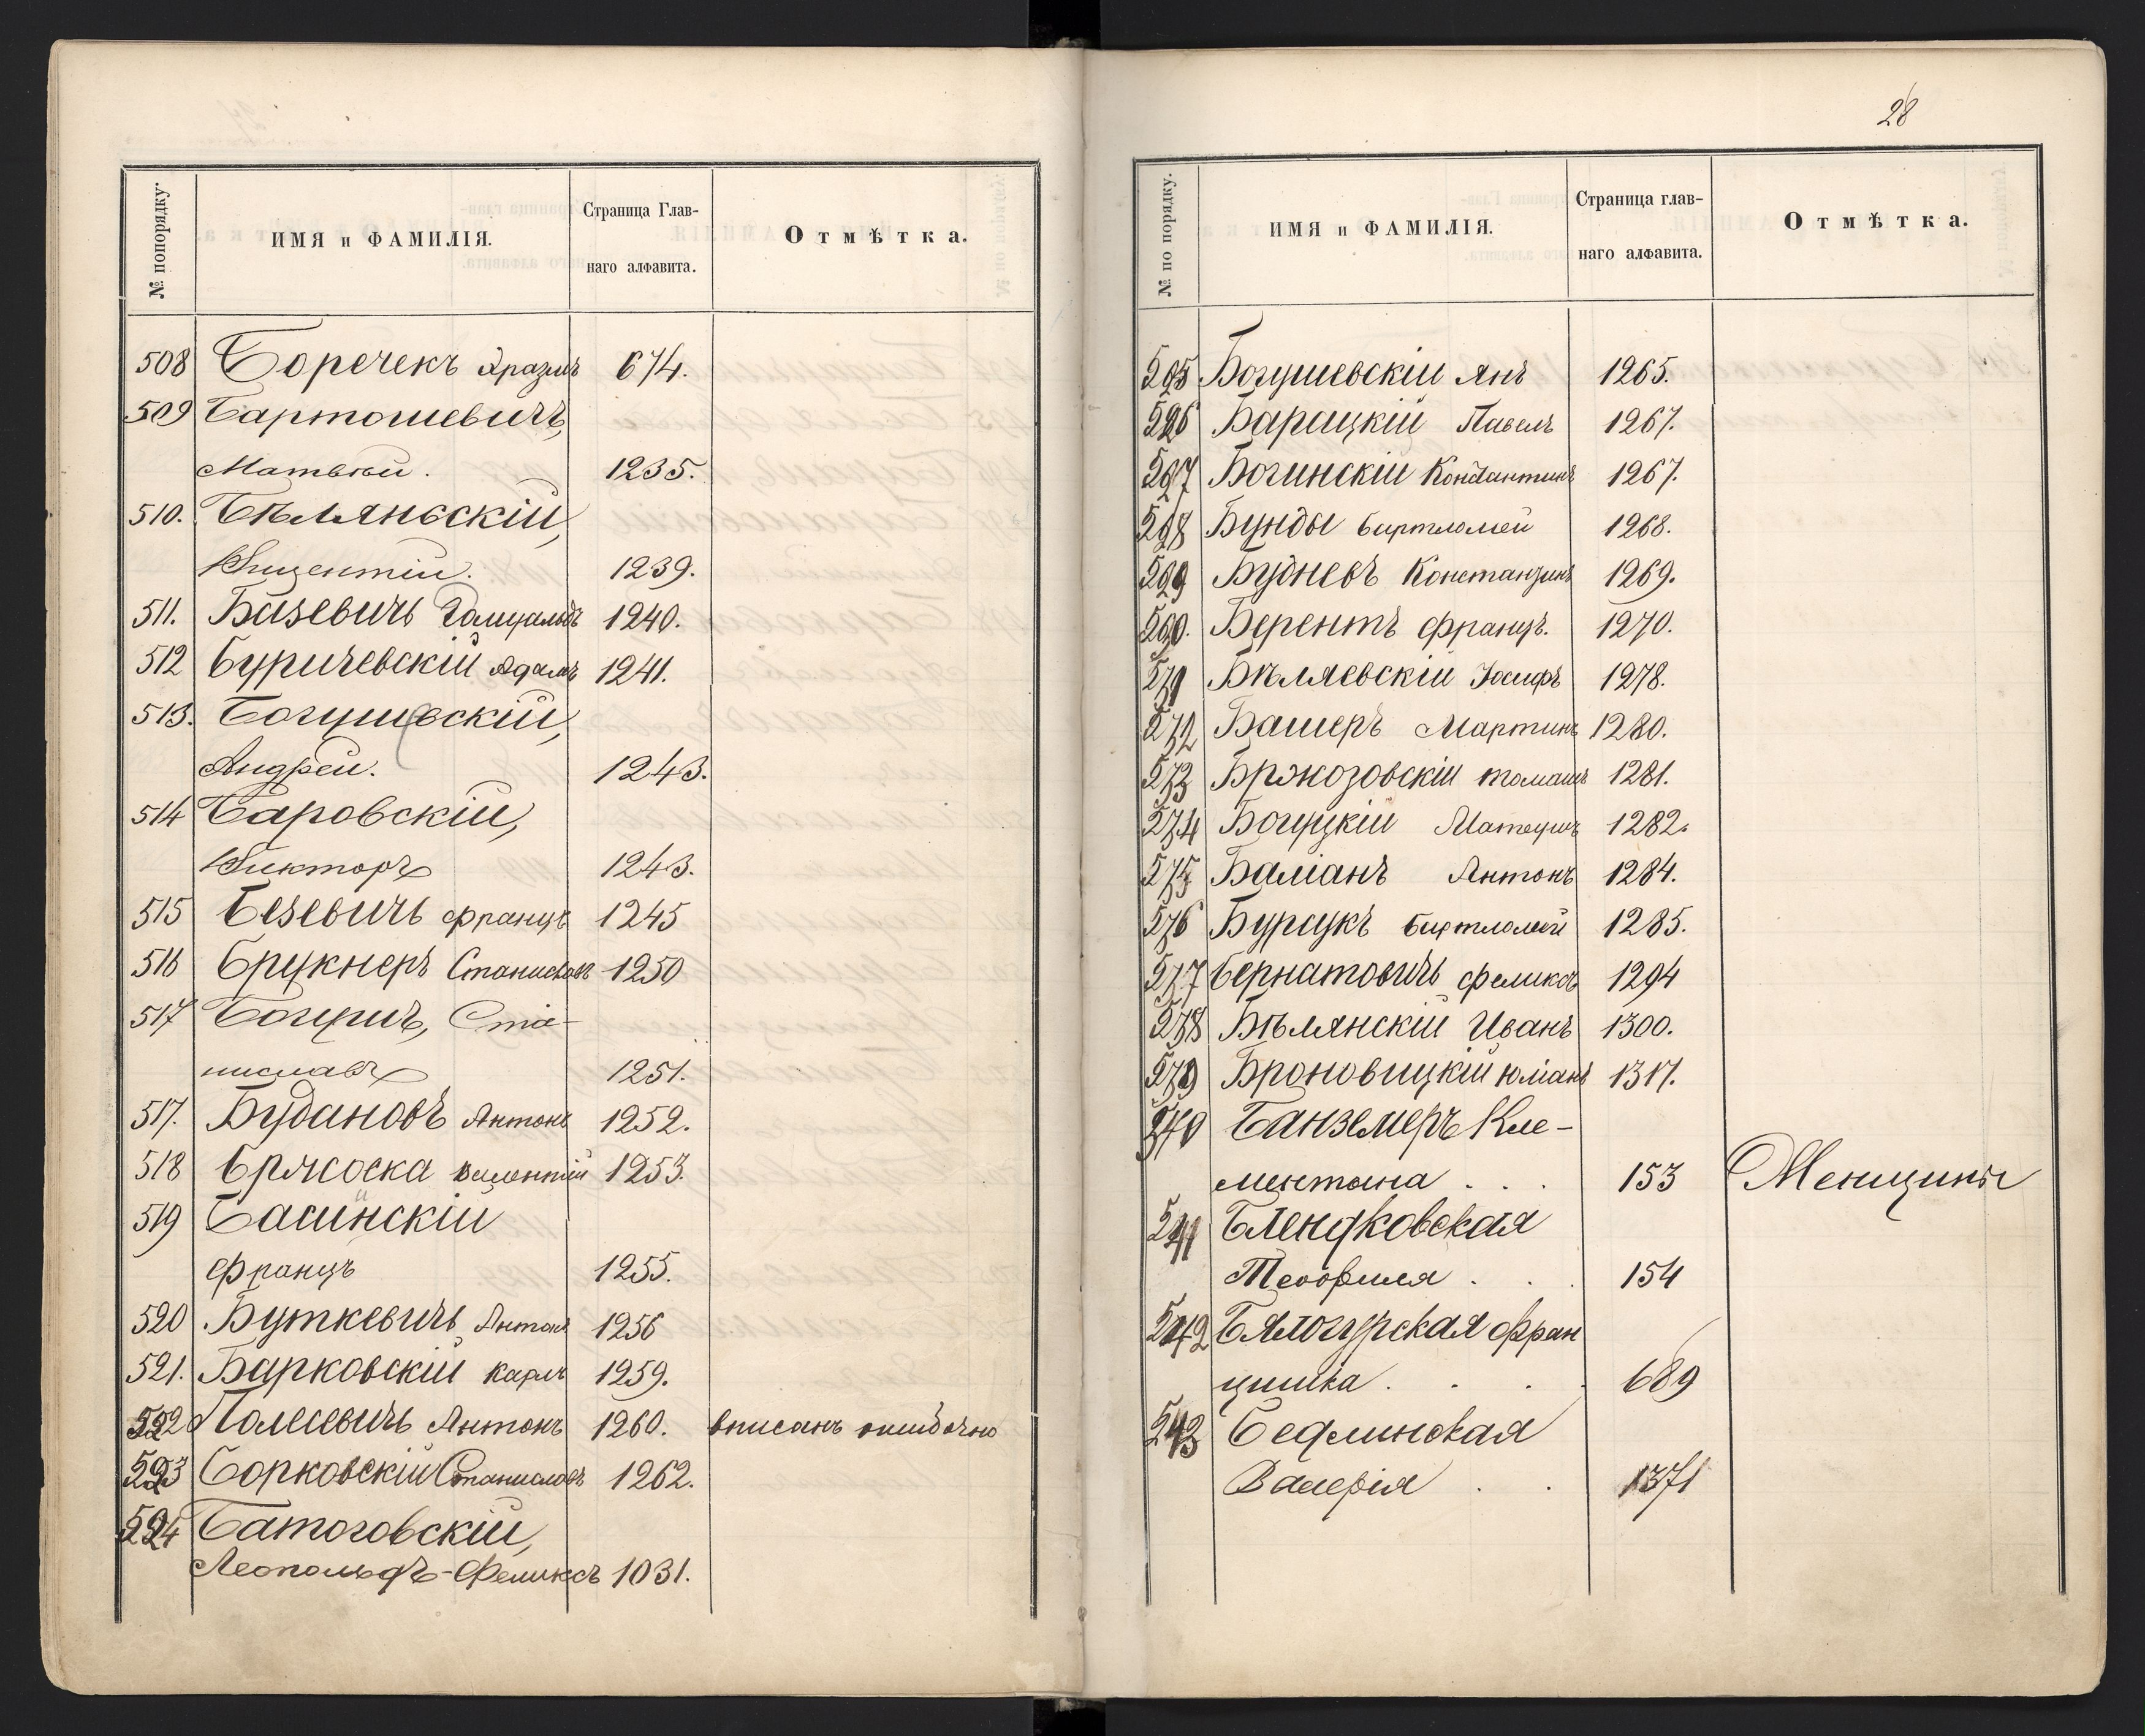 № попорядку.
ИМЯ и ФАМИЛІЯ.
Страница Глав-
наго алфавита.
Отмѣтка.
508 Боречекъ 674.
509 Бартошевичъ,
Матвѣй. 1235.
510. Бѣляньскій,
Вицентій. 1239.
511. Базевичъ Ромуальдъ 1240.
512 Буричевскій Адамъ 1241.
513. Богушевскій,
Андрей. 1243.
514 Баровскій,
Викторъ 1243.
515 Безевичъ Францъ 1245
516 Брукнеръ Станиславъ 1250
517 Богушъ, Ста-
ниславъ 1251.
517. Будановъ Антонъ 1252.
518 Брясоска Валентій 1253.
519 Басинскій
Францъ 1255.
520 Буткевичъ Антонъ 1256
521. Барковскій Карлъ 1259.
522 Полесевичъ Антонъ 1260. вписанъ ошибочно
523 Борковскій Станиславъ 1262.
524 Батоговскій,
Леопольдъ-Феликсъ 1031.
28
№ по порядку.
ИМЯ и ФАМИЛІЯ.
Страница глав-
наго алфавита.
Отмѣтка.
525 Богушевскій Янъ 1265.
526 Барацкій Павелъ 1267.
527 Богинскій Константинъ 1267.
528 Бунды Бартломей 1268.
529 Будневъ Константинъ 1269.
530. Берентъ Францъ. 1270.
531 Бѣляевскій Іосифъ 1278.
532 Башеръ Мартинъ 1280.
533 Бржозовскій Томашъ 1281.
534 Богуцкій Матеушъ 1282.
535 Баліанъ Антонъ 1284.
536 Бурсукъ Бартломей 1285.
537 Бернатовичъ Феликсъ 1294
538 Бѣлянскій Иванъ 1300.
539 Броновицкій Юліанъ 1317.
540 Банземеръ Кле-
ментына . . . 153 Женщины
541 Блендковская
Теофиля . . . 154
542 Бялогурская Фран
цишка . . . . 689
543 Бедлинская
Валерія . . 1371